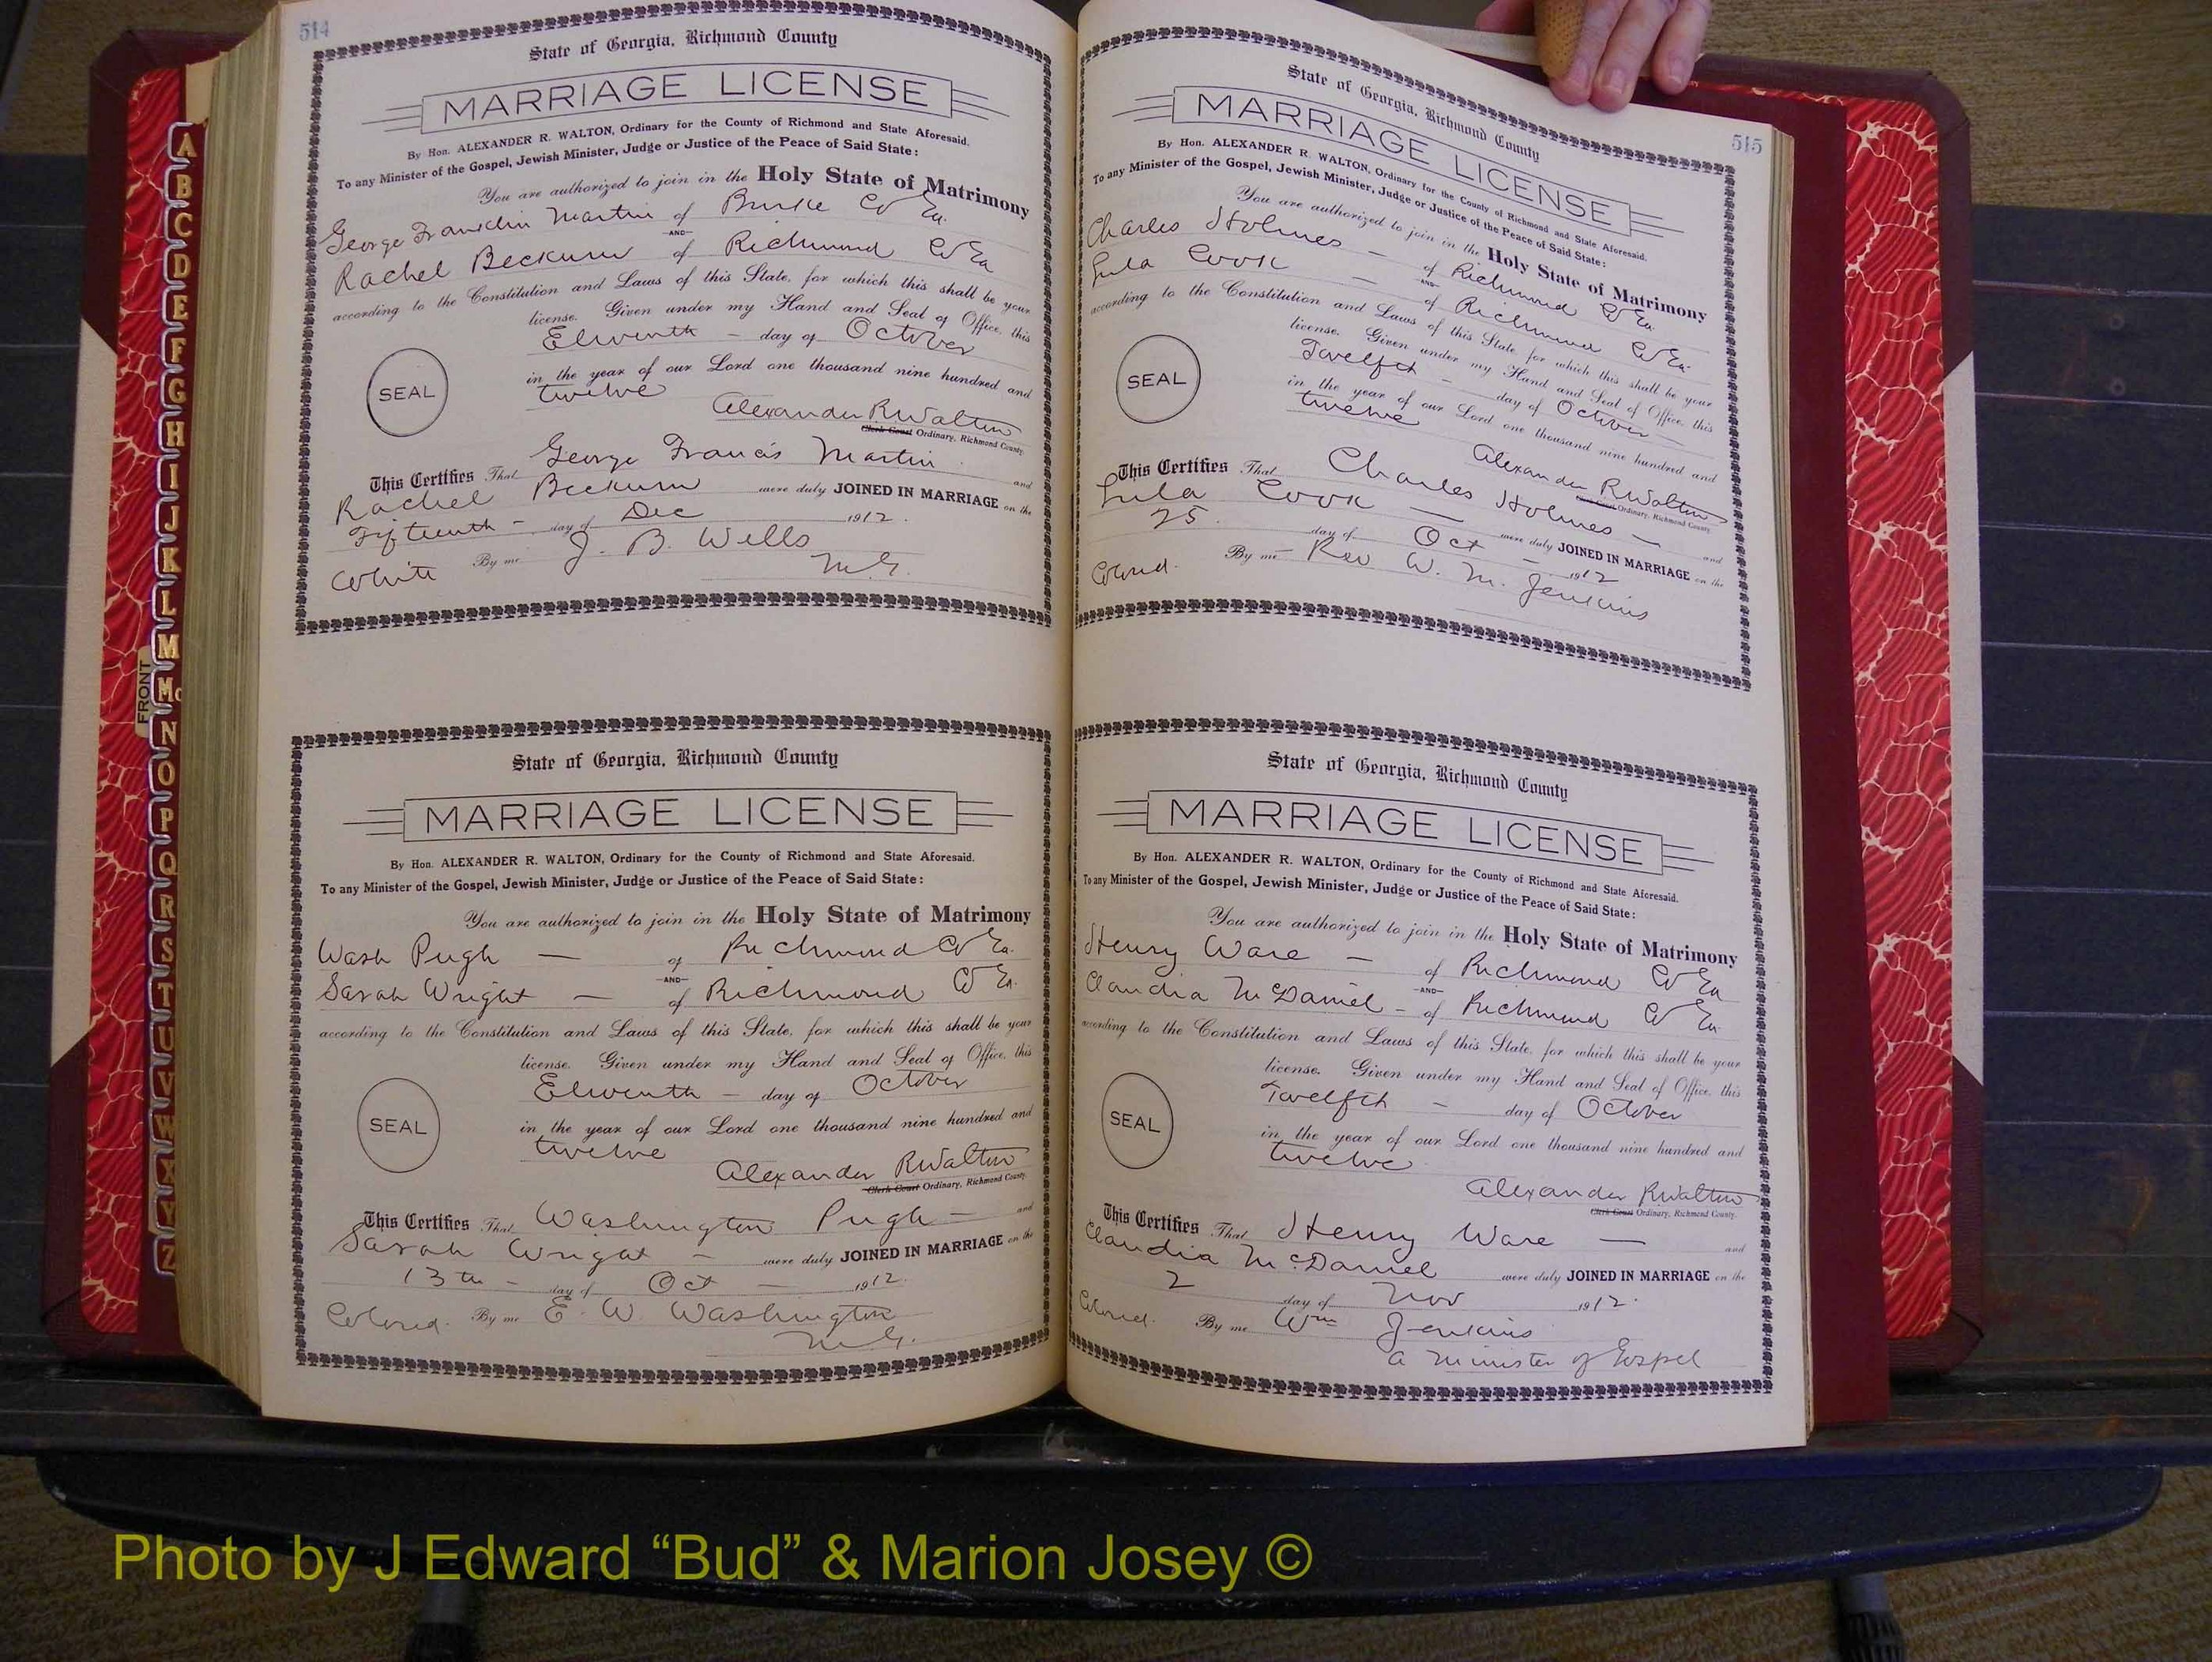 514
State of Georgia, Richmond County
MARRIAGE LICENSE
By Hon. ALEXANDER R. WALTON, Ordinary for the County of Richmond and State Aforesaid.
To any Minister of the Gospel, Jewish Minister, Judge or Justice of the Peace of Said State:
You are authorized to join in the Holy State of Matrimony
George Franklin Martin of Burke Co Ga.
AND
Rachel Beckum of Richmond Co Ga
according to the Constitution and Laws of this State, for which this shall be your
license. Given under my Hand and Seal of Office, this
Eleventh - day of October
SEAL
in the year of our Lord one thousand nine hundred and
twelve
Alexander R Walton
Clerk Court Ordinary, Richmond County.
This Certifies That George Francis Martin and
Rachel Beckum were duly JOINED IN MARRIAGE on the
Fifteenth - day of Dec 1912.
By me J. B. Wells
White M.G.
State of Georgia, Richmond County
MARRIAGE LICENSE
By Hon. ALEXANDER R. WALTON, Ordinary for the County of Richmond and State Aforesaid.
To any Minister of the Gospel, Jewish Minister, Judge or Justice of the Peace of Said State:
You are authorized to join in the Holy State of Matrimony
Wash Pugh — of Richmond Co Ga.
AND
Sarah Wright — of Richmond Co Ga.
according to the Constitution and Laws of this State, for which this shall be your
license. Given under my Hand and Seal of Office, this
Eleventh - day of October
SEAL
in the year of our Lord one thousand nine hundred and
twelve
Alexander R Walton
Clerk Court Ordinary, Richmond County.
This Certifies That Washington Pugh - and
Sarah Wright - were duly JOINED IN MARRIAGE on the
13th - day of Oct - 1912.
Colored. By me E. W Washington
M.G.
515
State of Georgia, Richmond County
MARRIAGE LICENSE
By Hon. ALEXANDER R. WALTON, Ordinary for the County of Richmond and State Aforesaid.
To any Minister of the Gospel, Jewish Minister, Judge or Justice of the Peace of Said State:
You are authorized to join in the Holy State of Matrimony
Charles Holmes - of Richmond Co Ga.
AND
Lula Cook - of Richmond Co Ga.
according to the Constitution and Laws of this State, for which this shall be your
license. Given under my Hand and Seal of Office, this
Twelfth - day of October
SEAL
in the year of our Lord one thousand nine hundred and
twelve
Alexander R Walton
Clerk Court Ordinary, Richmond County.
This Certifies That Charles Holmes - and
Lula Cook — were duly JOINED IN MARRIAGE on the
25. day of Oct - 1912
Colored. By me Rev. W. M. Jenkins
State of Georgia, Richmond County
MARRIAGE LICENSE
By Hon. ALEXANDER R. WALTON, Ordinary for the County of Richmond and State Aforesaid.
To any Minister of the Gospel, Jewish Minister, Judge or Justice of the Peace of Said State:
You are authorized to join in the Holy State of Matrimony
Henry Ware - of Richmond Co Ga
AND
Claudia McDaniel - of Richmond Co Ga.
according to the Constitution and Laws of this State, for which this shall be your
license. Given under my Hand and Seal of Office, this
Twelfth - day of October
SEAL
in the year of our Lord one thousand nine hundred and
twelve
Alexander R Walton
Clerk Court Ordinary, Richmond County.
This Certifies That Henry Ware — and
Claudia McDaniel were duly JOINED IN MARRIAGE on the
2 day of Nov 1912.
Colored. By me Wm Jenkins
a Minister of Gospel
FRONT
A
B
C
D
E
F
G
H
I
J
K
L
M
Mc
N
O
P
Q
R
S
T
U
V
W
X
Y
Z
Photo by J Edward “Bud” & Marion Josey ©